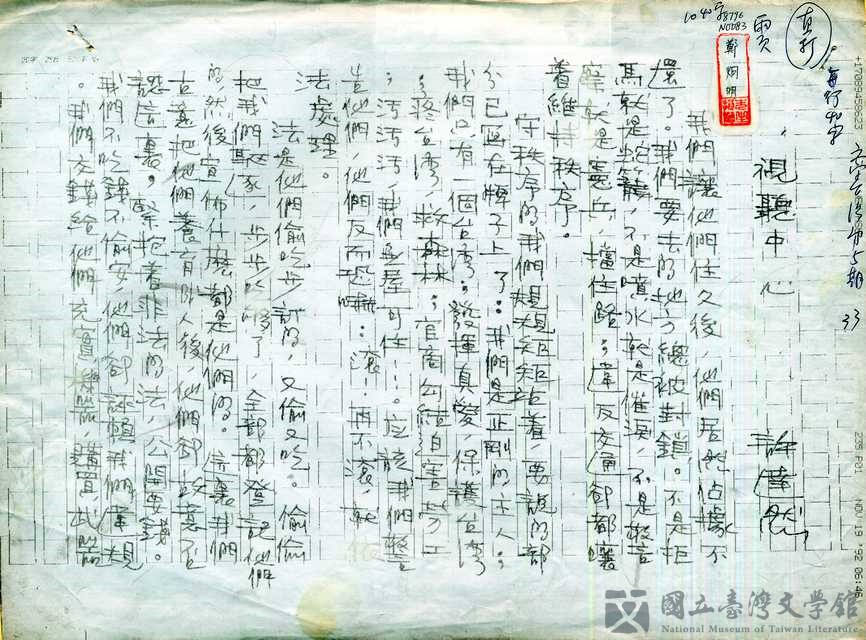 真打
每行40字
文学台灣第5期 33
1040字
8796
N0083
鄭炯明
視聽中心
許達然
我們讓他們住久後,他們居然佔據不
還了。我們要去的地方總被封鎖。不是拒
馬就是蛇籠,不是噴水就是催淚,不是警
察就是憲兵,擋住路;違反交通卻都嚷
着維持秩序。
守秩序的我們規規矩矩站着,要說的部
分已画在牌子上了:我們是正剛的主人;
我們只有一個台灣;發揮真愛,保護台灣
;疼台灣,救森林;官商勾結迫害勞工
;污污污,我們無屋可住!。应該我們警
告他們,他們反而恐嚇:滾!再不滾,就依
法處理。
法是他們偷吃步訂的,又偷又吃。偷偷
把我們,步步吃够了,全部都登記他們
的然後宣佈什麽都是他們的。裏我們
古意把他們養育後,他們卻故意
裏。緊抱着非法的法,公開要錢。
我們不吃錢不偷安,他們卻誣賴我們違規
。我們交錢給他們充實機器,購買武器
國立臺灣文學館
National Museum of Taiwan Literature